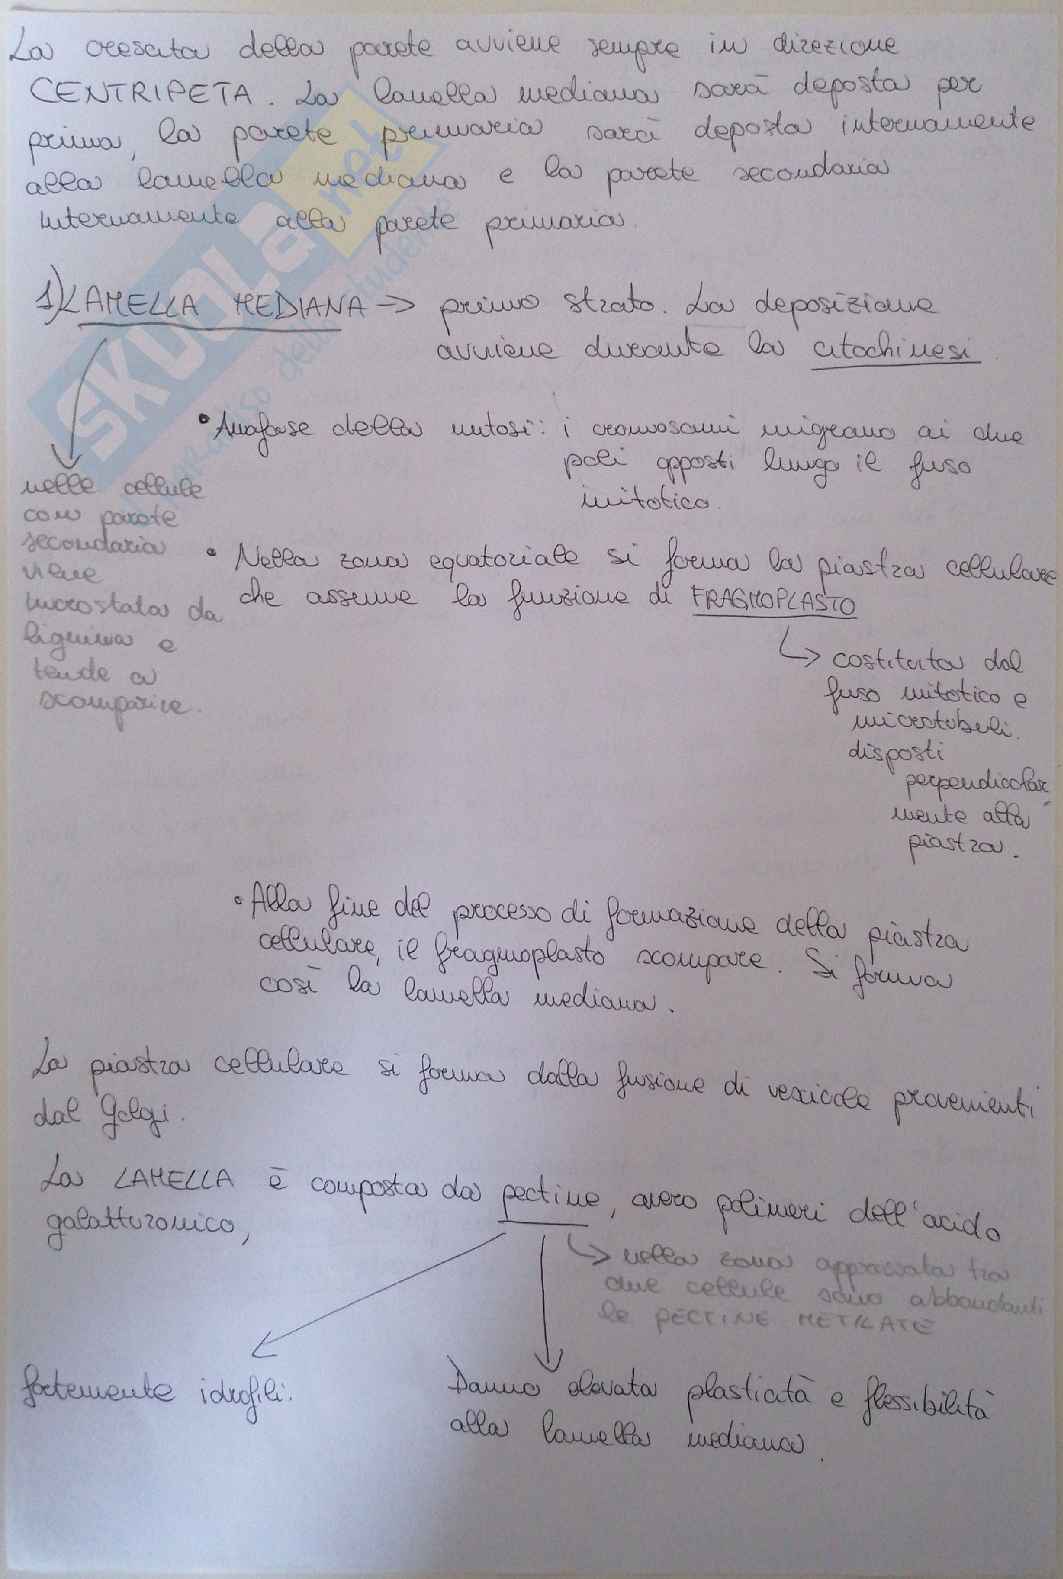 La crescita della parete avviene sempre in direzione
CENTRIPETA. La lamella mediana sarà deposta per
prima, la parete primaria sarà deposta internamente
alla lamella mediana e la parete secondaria
internamente alla parete primaria.
1) LAMELLA MEDIANA → primo strato. La deposizione
avviene durante la citochinesi.
• Anafase della mitosi: i cromosomi migrano ai due
poli opposti lungo il fuso
mitotico.
nelle cellule
con parete
secondaria
viene
incrostata da
lignina e
tende a
scomparire.
• Nella zona equatoriale si forma la piastra cellulare
che assume la funzione di FRAGMOPLASTO
↳ costituita dal
fuso mitotico e
microtubuli.
disposti
perpendicolar
mente alla
piastra.
• Alla fine del processo di formazione della piastra
cellulare, il fragmoplasto scompare. Si forma
così la lamella mediana.
La piastra cellulare si forma dalla fusione di vescicole provenienti
dal Golgi.
La LAMELLA è composta da pectine, ovvero polimeri dell'acido
galatturonico,
↳ nella zona appressata tra
due cellule sono abbondanti
le PECTINE METILATE
fortemente idrofili.
Danno elevata plasticità e flessibilità
alla lamella mediana.
SKUOLA.net